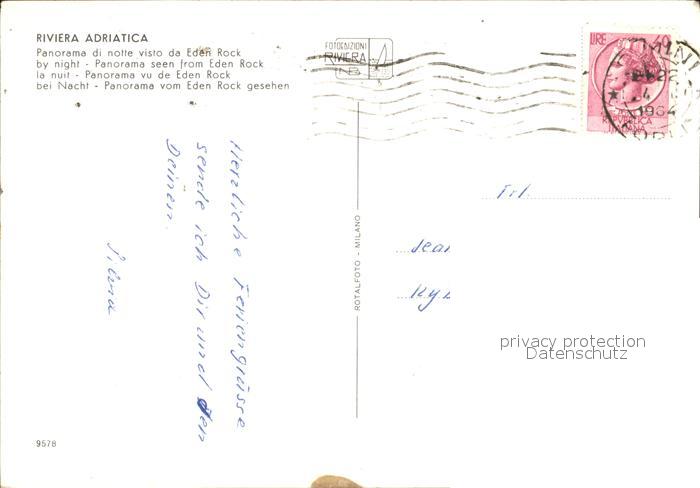 RIVIERA ADRIATICA
Panorama di notte visto da Eden Rock
by night - Panorama seen from Eden Rock
la nuit - Panorama vu de Eden Rock
bei Nacht - Panorama vom Eden Rock gesehen
FOTOEDIZIONI
RIVIERA
LIRE 40
22
4
1964
REPUBBLICA
ITALIANA
Herzliche Feriengrüsse
sende ich Dir und den
Deinen.
Silvia
ROTALFOTO - MILANO
Frl.
Jean
privacy protection
Datenschutz
9578